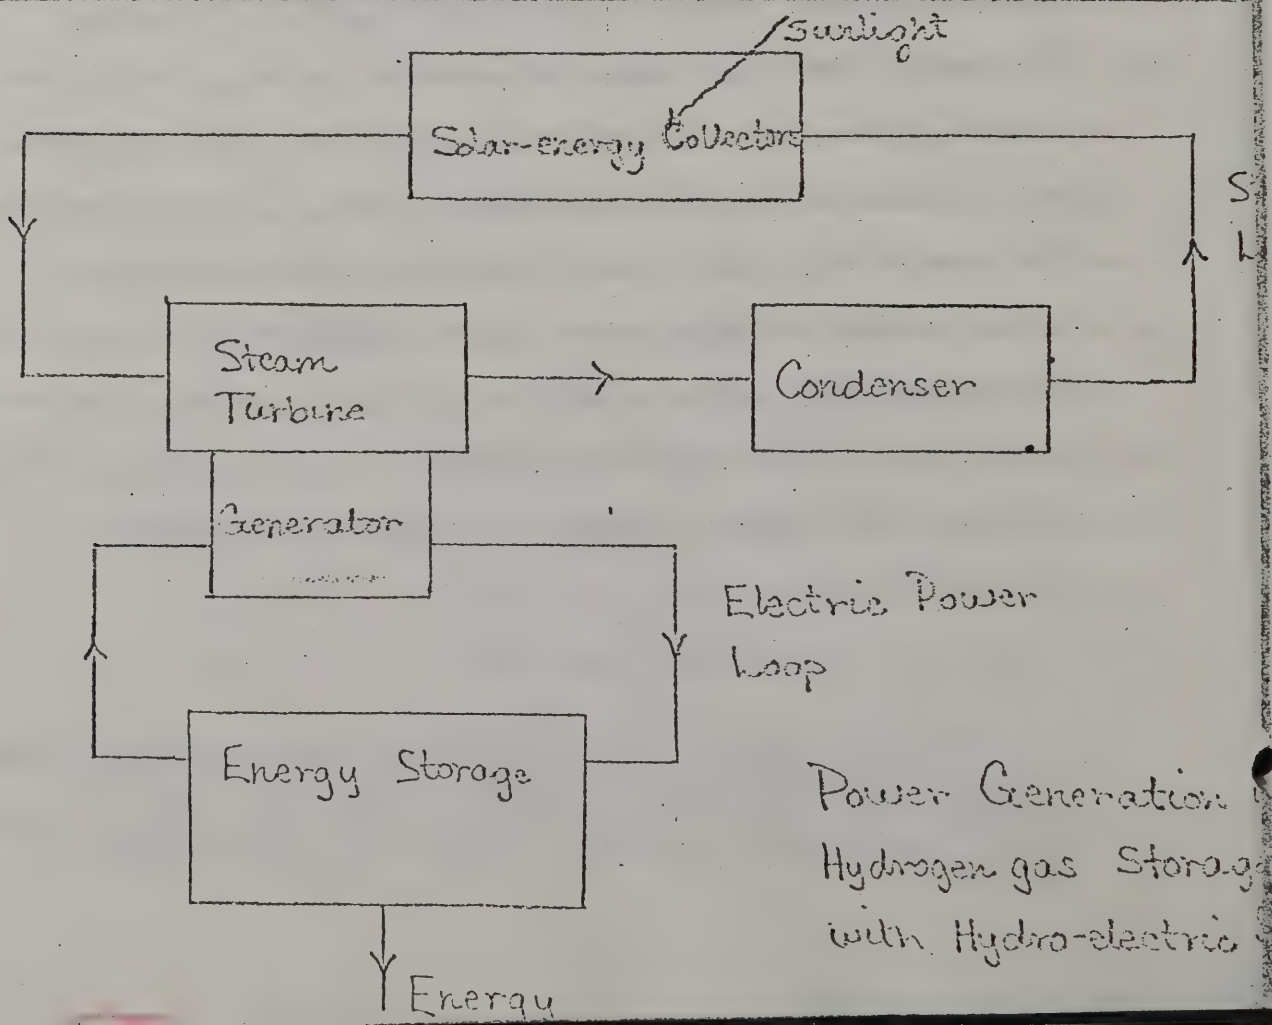 sunlight
Solar-energy Collectors
S
L
Steam
Turbine
Condenser
Generator
Electric Power
Loop
Energy Storage
Power Generation
Hydrogen gas Storage
with Hydro-electric
Energy